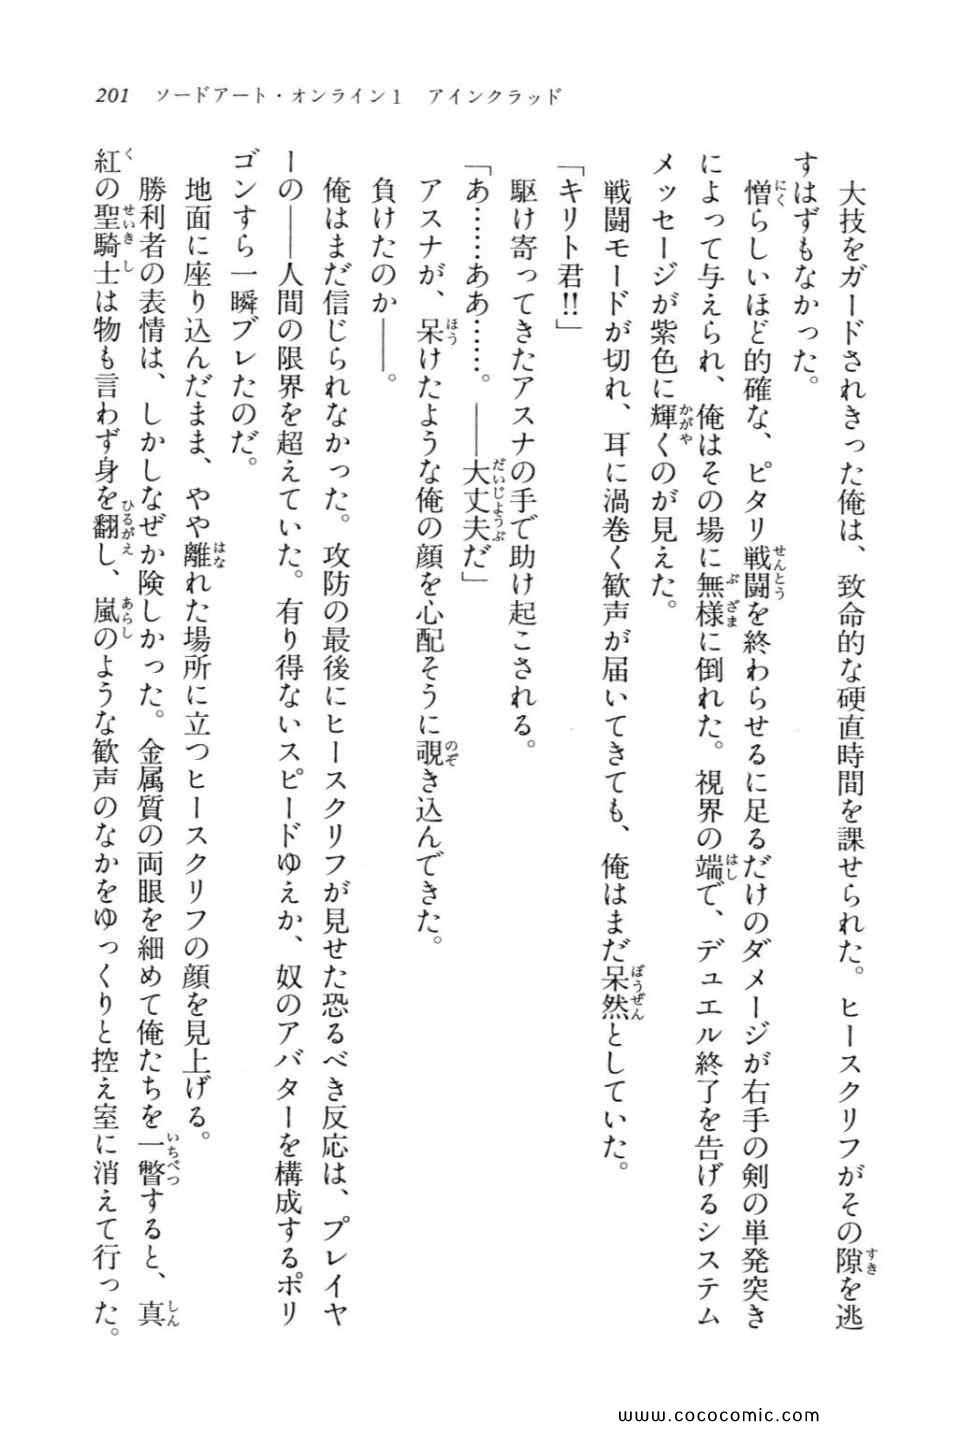 201　ソードアート・オンライン1　アインクラッド
　大技をガードされきった俺は、致命的な硬直時間を課せられた。ヒースクリフがその隙を逃
すはずもなかった。
　憎らしいほど的確な、ピタリ戦闘を終わらせるに足るだけのダメージが右手の剣の単発突き
によって与えられ、俺はその場に無様に倒れた。視界の端で、デュエル終了を告げるシステム
メッセージが紫色に輝くのが見えた。
　戦闘モードが切れ、耳に渦巻く歓声が届いてきても、俺はまだ呆然としていた。
「キリト君!!」
　駆け寄ってきたアスナの手で助け起こされる。
「あ……ああ……。――大丈夫だ」
　アスナが、呆けたような俺の顔を心配そうに覗き込んできた。
　負けたのか――。
　俺はまだ信じられなかった。攻防の最後にヒースクリフが見せた恐るべき反応は、プレイヤ
ーの――人間の限界を超えていた。有り得ないスピードゆえか、奴のアバターを構成するポリ
ゴンすら一瞬ブレたのだ。
　地面に座り込んだまま、やや離れた場所に立つヒースクリフの顔を見上げる。
　勝利者の表情は、しかしなぜか険しかった。金属質の両眼を細めて俺たちを一瞥すると、真
紅の聖騎士は物も言わず身を翻し、嵐のような歓声のなかをゆっくりと控え室に消えて行った。
www.cococomic.com